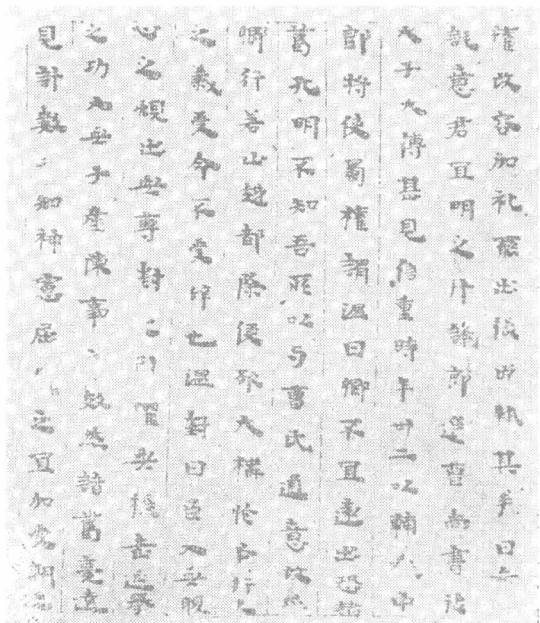 權改容加礼罷出張昭執其手曰
託意君宜明之拜議郎選曹尚書徙
太子太傅甚見信重時年卅二以輔義中
郎將使蜀權謂溫曰卿不宜遠出恐諸
葛孔明不知吾所以与曹氏通意故屈
卿行若山越都除便欲大構於丕行人
之義受命不受辞也溫對曰臣入無腹
心之規出無專對之用懼無張老延譽
之功又無子產陳事之效然諸葛亮達
見計數必知神慮屈申之宜加受朝廷